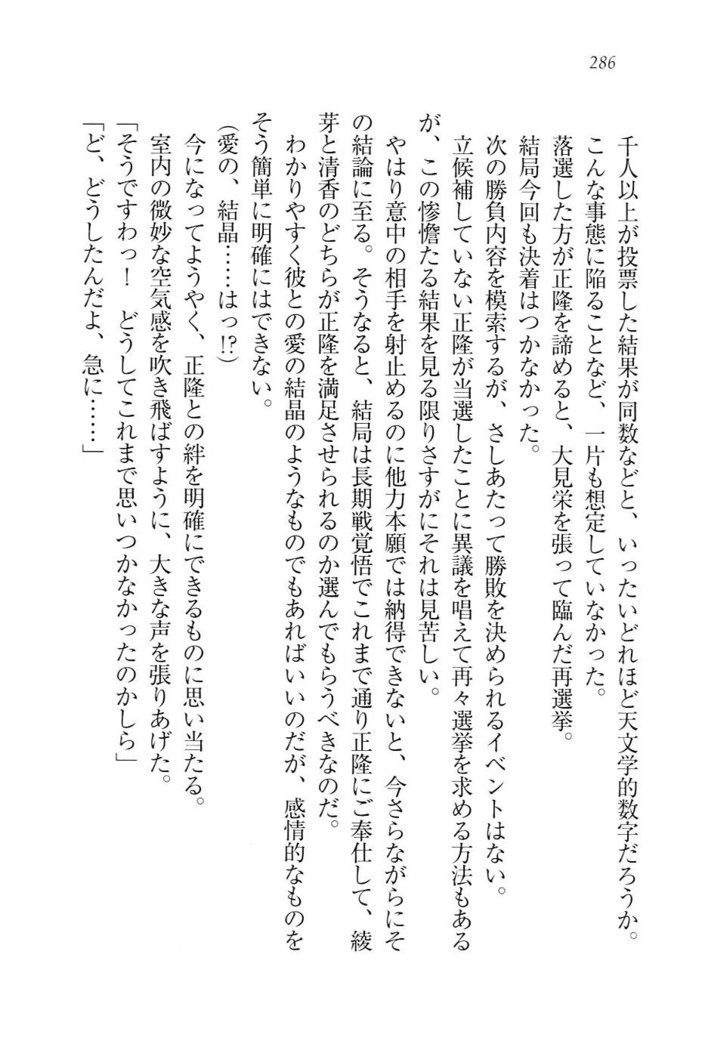 286
千人以上が投票した結果が同数などと、いったいどれほど天文学的数字だろうか。
こんな事態に陥ることなど、一片も想定していなかった。
落選した方が正隆を諦めると、大見栄を張って臨んだ再選挙。
結局今回も決着はつかなかった。
次の勝負内容を模索するが、さしあたって勝敗を決められるイベントはない。
立候補していない正隆が当選したことに異議を唱えて再々選挙を求める方法もある
が、この惨憺たる結果を見る限りさすがにそれは見苦しい。
やはり意中の相手を射止めるのに他力本願では納得できないと、今さらながらにそ
の結論に至る。そうなると、結局は長期戦覚悟でこれまで通り正隆にご奉仕して、綾
芽と清香のどちらが正隆を満足させられるのか選んでもらうべきなのだ。
わかりやすく彼との愛の結晶のようなものでもあればいいのだが、感情的なものを
そう簡単に明確にはできない。
(愛の、結晶……はっ!?)
今になってようやく、正隆との絆を明確にできるものに思い当たる。
室内の微妙な空気感を吹き飛ばすように、大きな声を張りあげた。
「そうですわっ！　どうしてこれまで思いつかなかったのかしら」
「ど、どうしたんだよ、急に……」